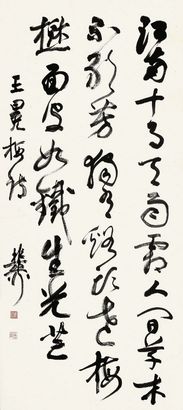 江南十月天雨霜人间草木
不敢芳獨有谿頭老梅
樹面皮如鐵生光芒
王冕梅詩